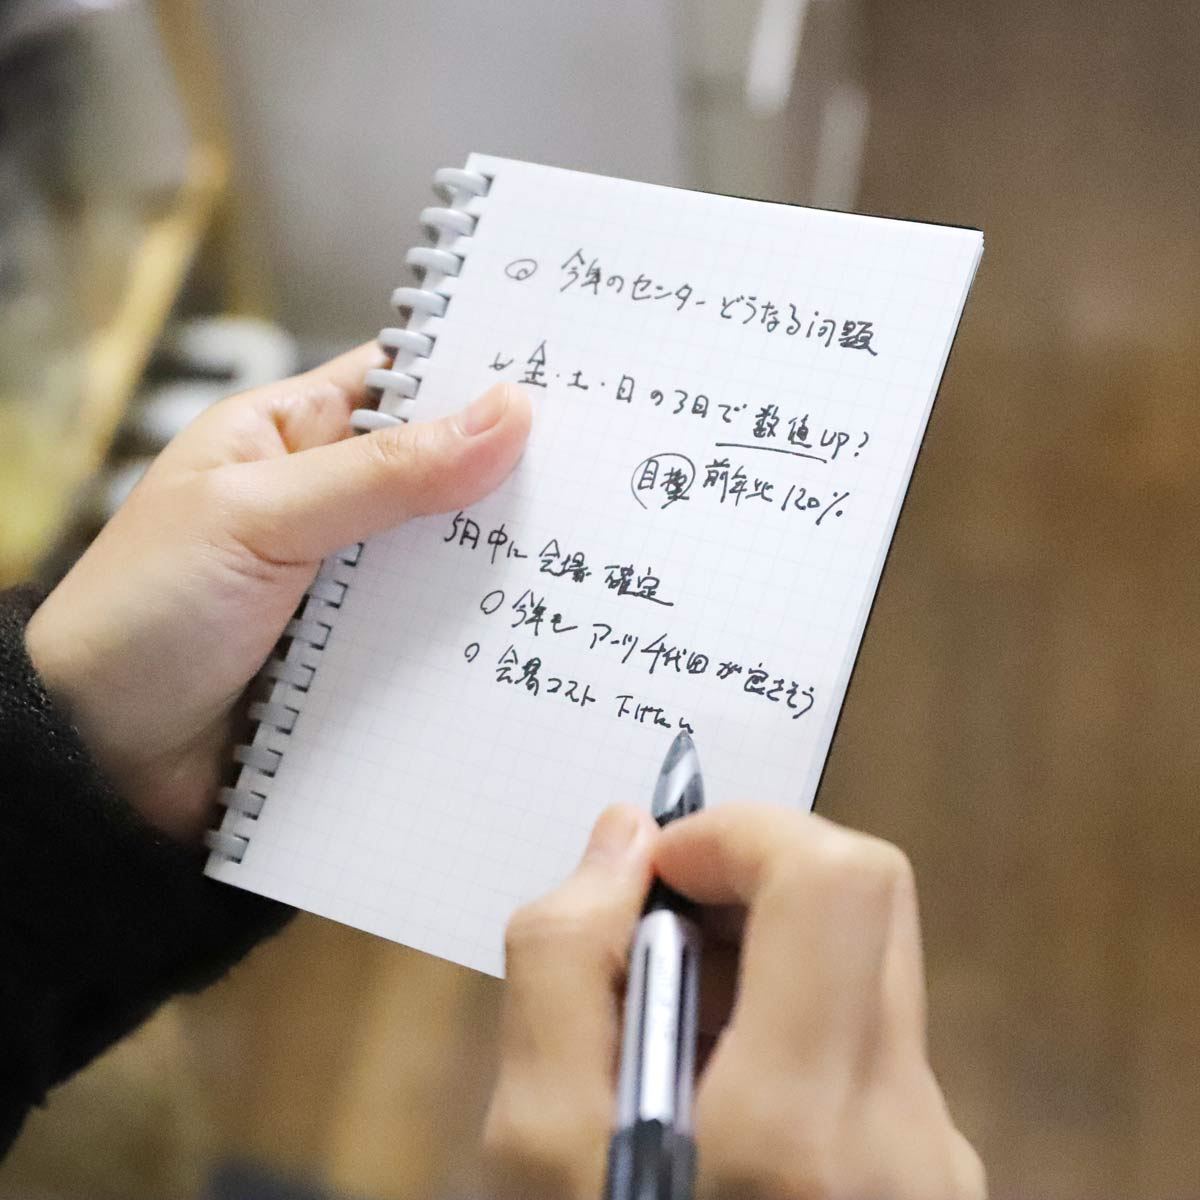 ◎ 今年のセンターどうなる問題
↳ 金・土・日の3日で数値UP?
目標 前年比120%
5月中に会場確定
○ 今年も アーツ千代田が良さそう
○ 会場コスト 下げたい